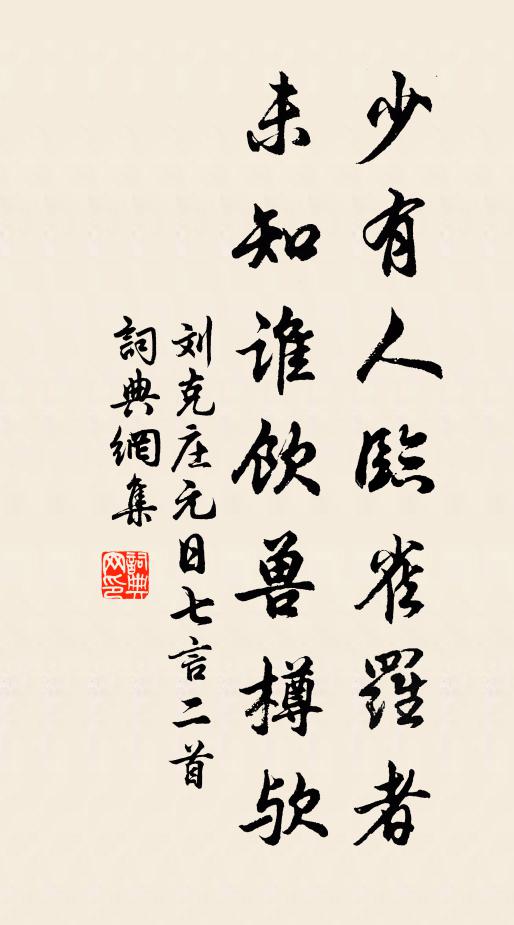 少有人臨雀羅者
未知誰飲兽樽欤
刘克庄元日七言二首
詞典網集
詞典網印